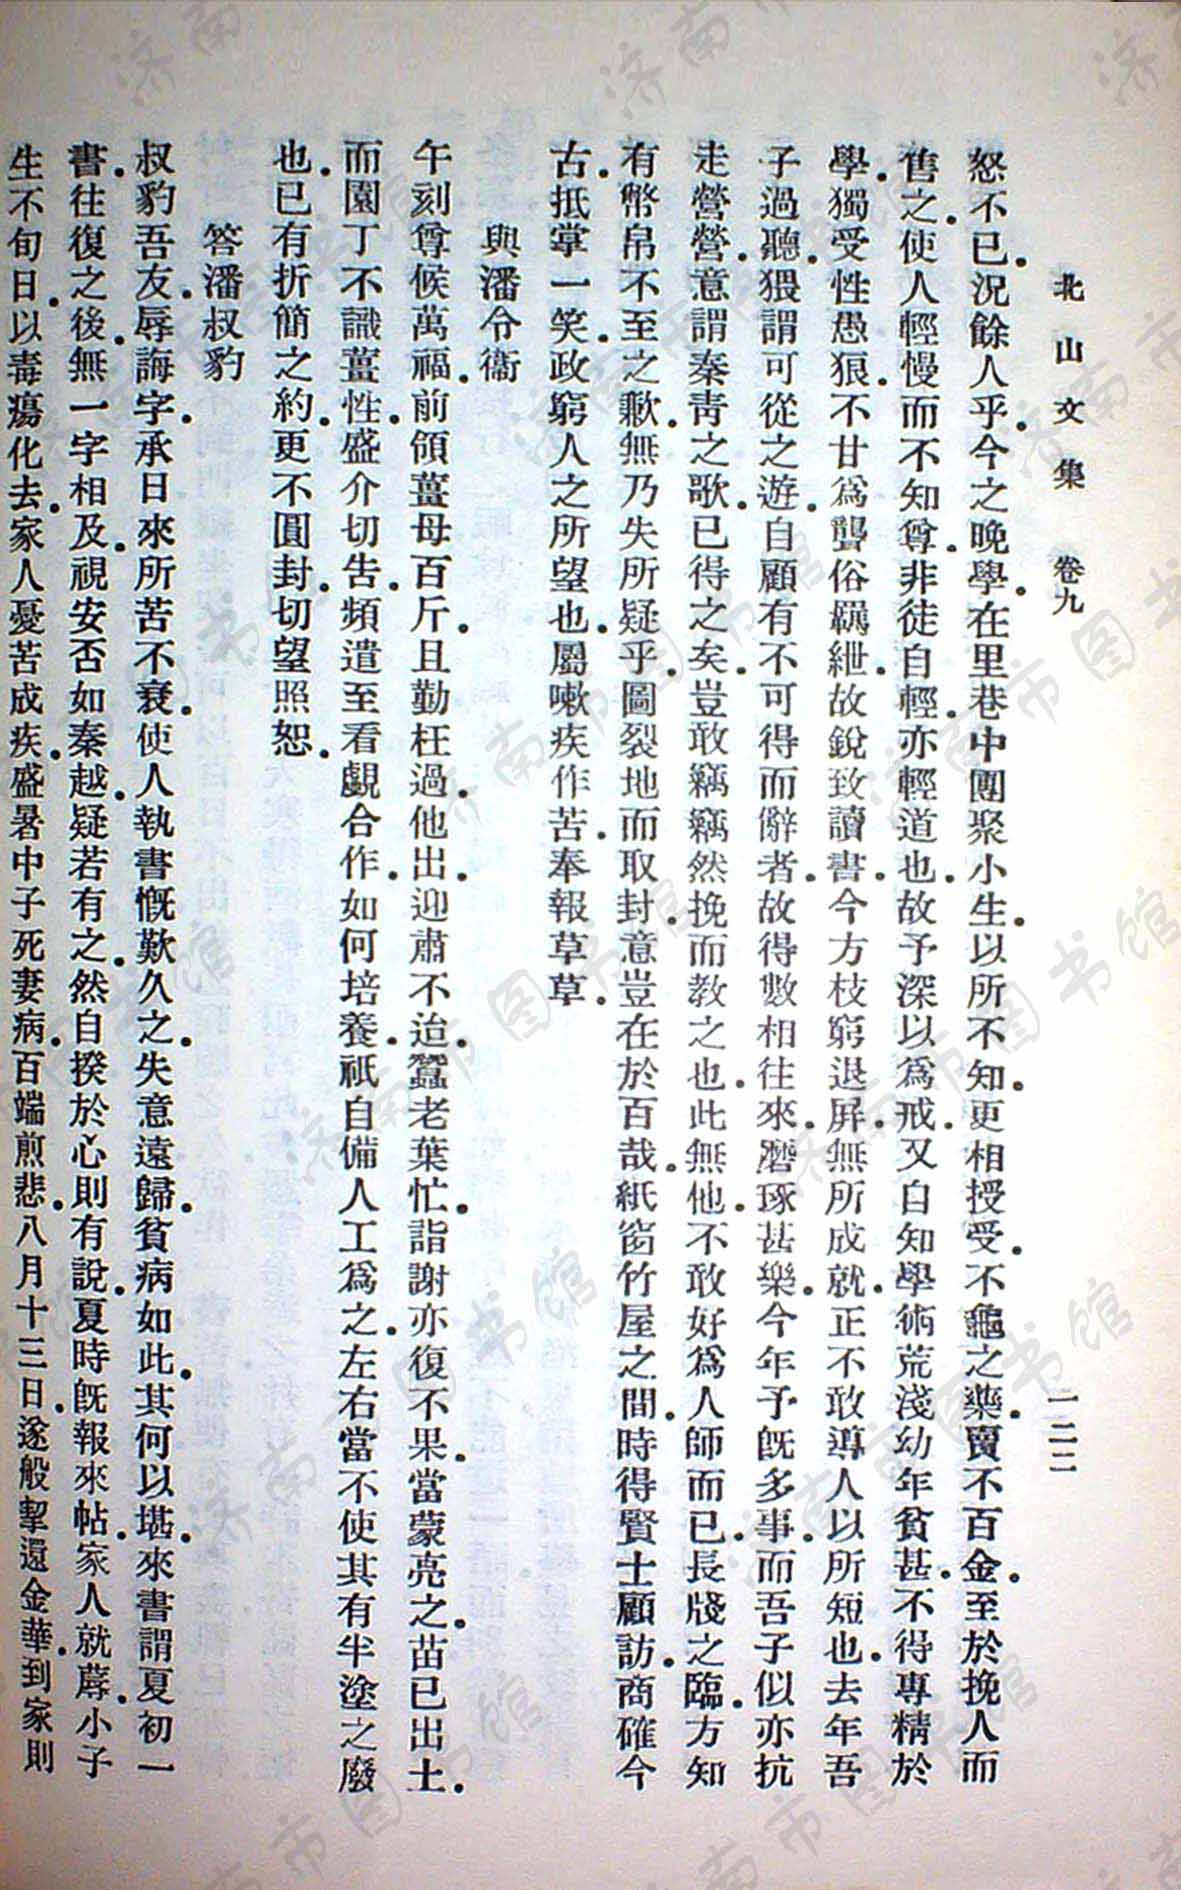 北山文集　卷九　一二二
怒不已。況餘人乎。今之晚學。在里巷中團聚小生。以所不知。更相授受。不龜之藥。賣不百金。至於挽人而
售之。使人輕慢而不知尊。非徒自輕。亦輕道也。故予深以爲戒。又自知學術荒淺。幼年貧甚。不得專精於
學。獨受性愚狠。不甘爲聾俗羈紲。故銳致讀書。今方枝窮退屏。無所成就。正不敢導人以所短也。去年吾
子過聽。猥謂可從之遊。自顧有不可得而辭者。故得數相往來。磨琢甚樂。今年予旣多事。而吾子似亦抗
走營營。意謂秦靑之歌。已得之矣。豈敢竊竊然挽而敎之也。此無他。不敢好爲人師而已。長牋之臨。方知
有幣帛不至之歉。無乃失所疑乎。圖裂地而取封。意豈在於百哉。紙窗竹屋之間。時得賢士顧訪。商確今
古。抵掌一笑。政窮人之所望也。屬嗽疾作苦。奉報草草。
與潘令衞
午刻尊候萬福。前領薑母百斤。且勤枉過。他出。迎肅不治。蠶老葉忙。詣謝亦復不果。當蒙亮之。苗已出土。
而園丁不識薑性。盛介切告。頻遣至看觑合作。如何培養。祇自備人工爲之。左右當不使其有半塗之廢
也。已有折簡之約。更不圓封。切望照恕。
答潘叔豹
叔豹吾友。辱誨字。承日來所苦不衰。使人執書慨歎久之。失意遠歸。貧病如此。其何以堪。來書謂夏初一
書往復之後。無一字相及。視安否如秦越。疑若有之。然自揆於心則有說。夏時旣報來帖。家人就蓐。小子
生不旬日。以毒瘍化去。家人憂苦成疾。盛暑中子死妻病。百端煎悲。八月十三日。遂般挈還金華。到家則